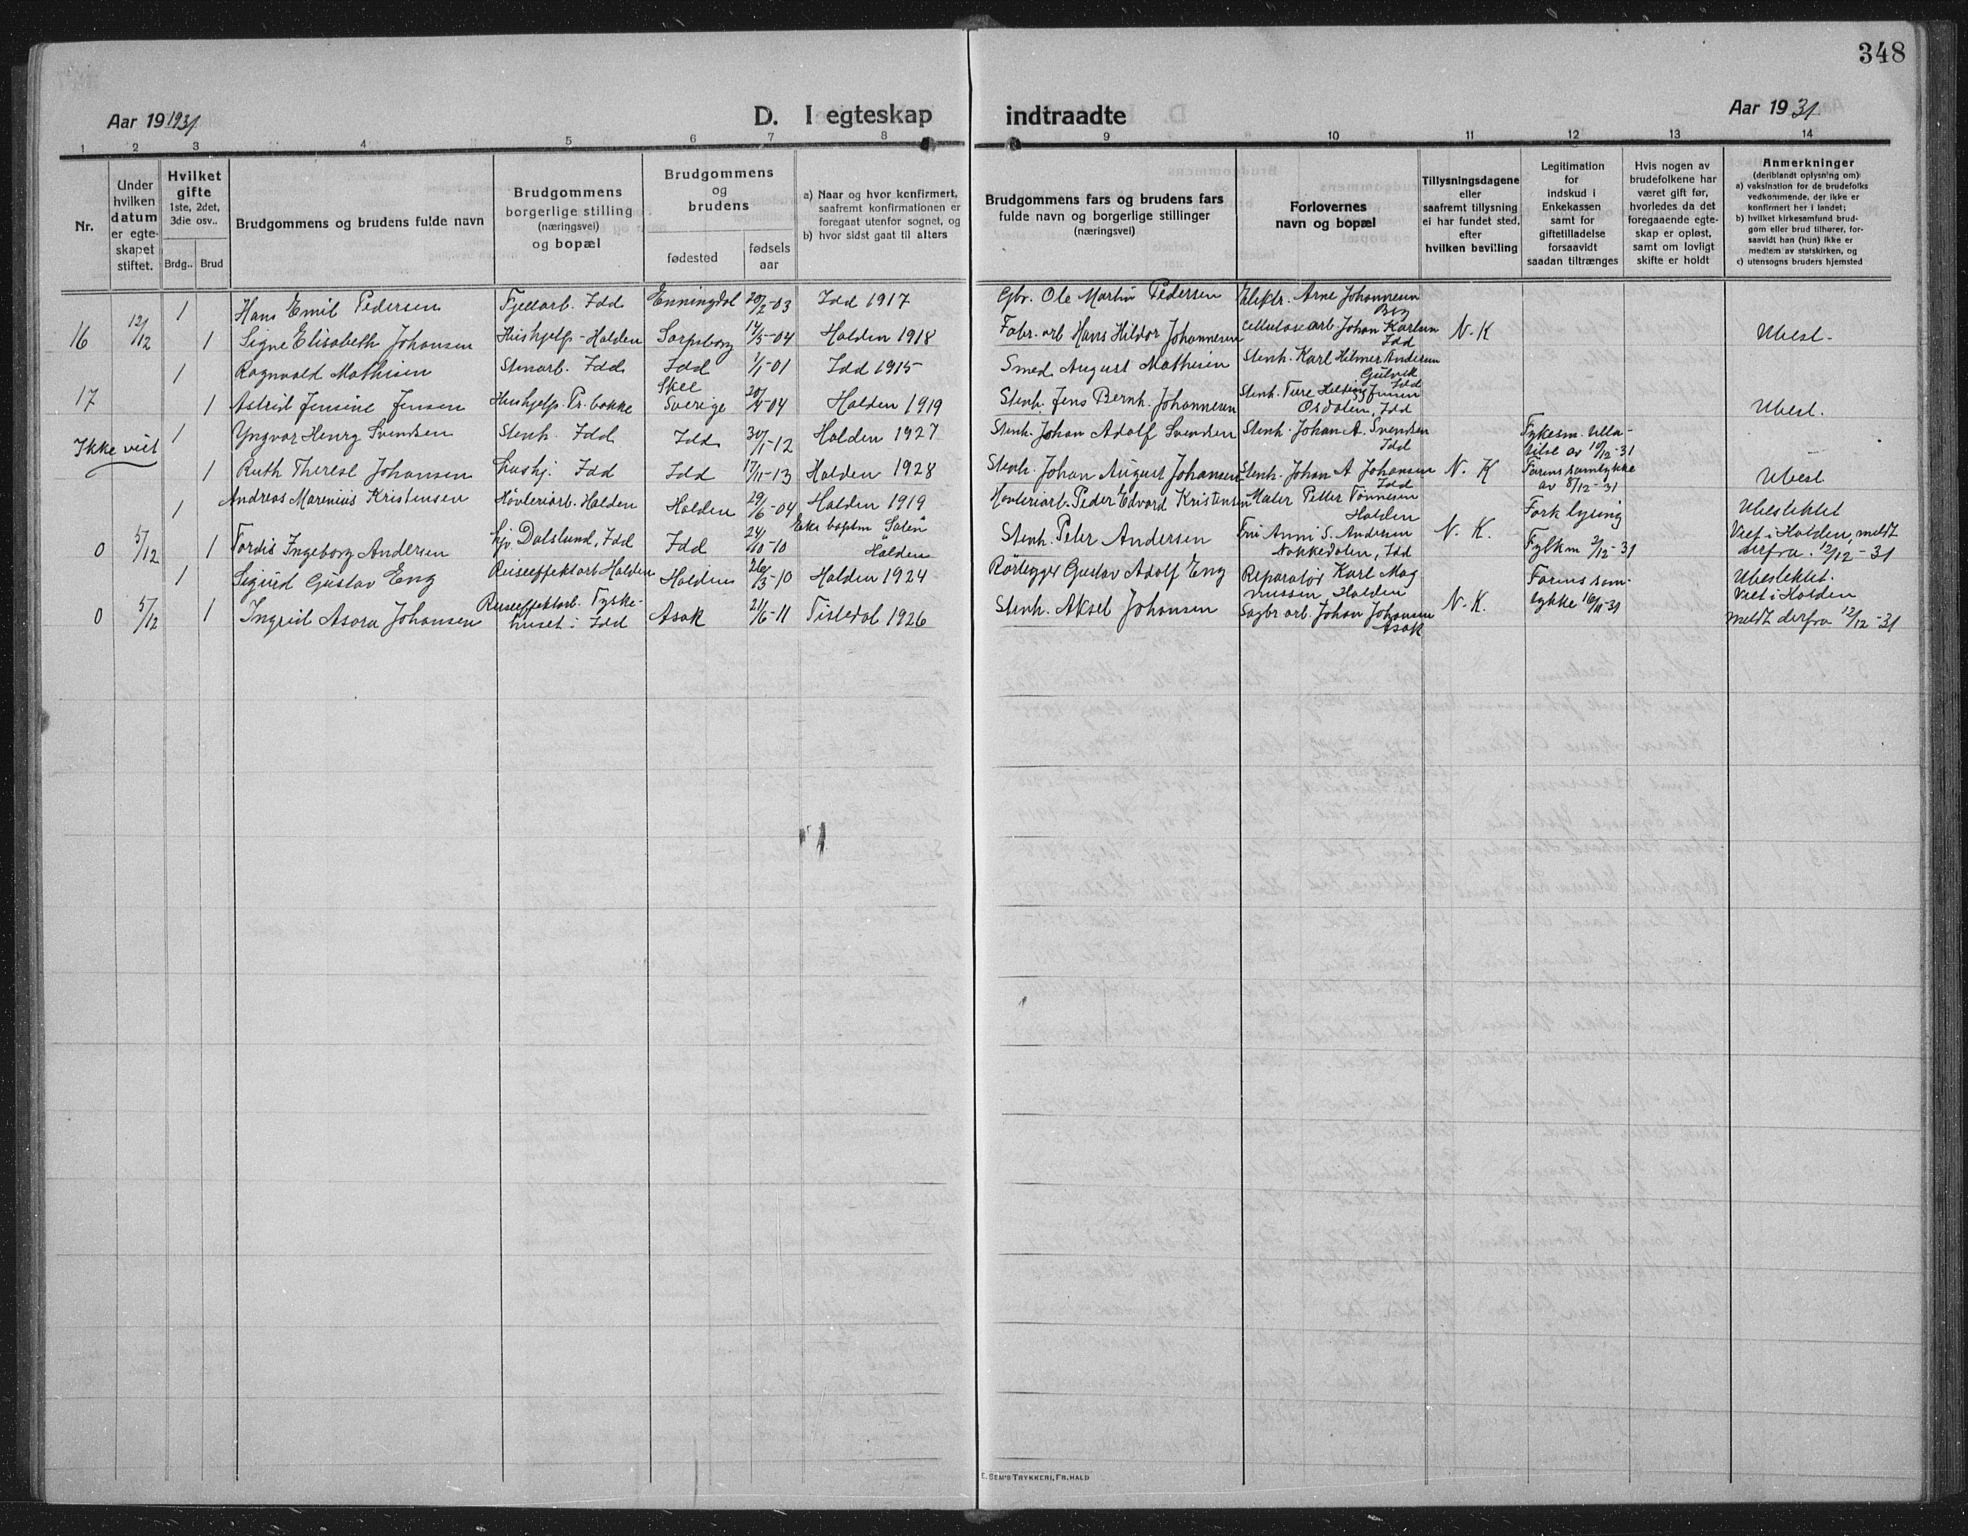 348
Aar 19 1931
D. I egteskap
indtraadte
Aar 19 31
1 2 3 4 5 6 7 8 9 10 11 12 13 14
Nr.
Under hvilken datum er egte-skapet stiftet.
Hvilket gifte 1ste, 2det, 3die osv..
Brdg..
Brud
Brudgommens og brudens fulde navn
Brudgommens borgerlige stilling (næringsvei) og bopæl
Brudgommens og brudens
fødested
fødsels aar
a) Naar og hvor konfirmert, saafremt konfirmationen er foregaat utenfor sognet, og
b) hvor sidst gaat til alters
Brudgommens fars og brudens fars fulde navn og borgerlige stillinger (næringsvei)
Forlovernes navn og bopæl
Tillysningsdagene eller saafremt tillysning ei har fundet sted, efter hvilken bevilling
Legitimation for indskud i Enkekassen samt for giftetilladelse forsaavidt saadan tiltrænges
Hvis nogen av brudefolkene har været gift før, hvorledes da det foregaaende egte-skap er opløst, samt om lovligt skifte er holdt
Anmerkninger (deriblandt oplysning om)
a) vaksination for de brudefolks vedkommende, der ikke er konfirmert her i landet;
b) hvilket kirkesamfund brud-gom eller brud tilhører, for-saavidt han (hun) ikke er medlem av statskirken, og
c) utensogns bruders hjemsted
1 Hans Emil Pedersen Fjellarb. Idd Enningdal 20/2-03 Idd 1917 Gbr. Ole Martin Pedersen Elektr. Arne Johannesen Berg
16 12/12 1 Signe Elisabeth Johansen Hushjelp - Halden Sarpsborg 17/5-04 Halden 1918 Fabr. arb Hans Hildor Johannesen Cellulosearb. Johan Karlsen Idd N.K Ubesl.
1 Ragnvald Mathisen Stenarb. Idd Idd 1/1-01 Idd 1915 Smed August Mathisen Stenh. Karl Hilmer Andersen Gulvik Idd
17 1 Astrid Jensine Jensen Hushjelp. Pr. bakke Skee Sverige 20/4-04 Halden 1919 Stenh. Jens Bernh. Johannesen Stenh. Ture Hilding Jensen Osdalen, Idd Ubesl.
Ikke viet 1 Yngvar Henry Svendsen Stenh. Idd Idd 30/1-12 Halden 1927 Stenh. Johan Adolf Svendsen Stenh. Johan A. Svendsen Idd Fykesm. tilla-telse av 10/12-31
1 Ruth Therese Johansen hushj. Idd Idd 17/11-13 Halden 1928 Stenh. Johan August Johansen Stenh. Johan A Johansen Idd N.K Farens samtykke av 8/12-31 Ubesl
1 Andreas Marenius Kristensen Høvleriarb. Halden Halden 29/6-04 Halden 1919 Høvleriarb. Peder Edvard Kristensen Maler Petter Tønnesen Halden Fork lysing Ubeslektet
0 5/12 1 Tordis Ingeborg Andersen hj. Dalslund, Idd Idd 24/10-10 Eks baptm "Salen" Halden Stenh. Peter Andersen Fru Anni S. Andersen Nokkedalen, Idd N.K. Fylkm 2/12-31 Viet i Halden, meldt derfra. 12/12-31
1 Sigurd Gustav Eng Reiseeffektarb Halden Halden 26/3-10 Halden 1924 Rørlegger Gustav Adolf Eng Reparatør Karl Mag nussen, Halden Farens sam- Ubeslektet.
0 5/12 1 Ingrid Asora Johansen Reiseeffektarb. Tyske-huset i Idd Asak 21/6-11 Tistedal 1926 Stenh. Aksel Johansen Sagbr arb. Johan Johansen Asak N.K. tykke 16/11-31 Viet i Halden meldt derfra 12/12-31
E. SEM'S TRYKKERI, FR.HALD